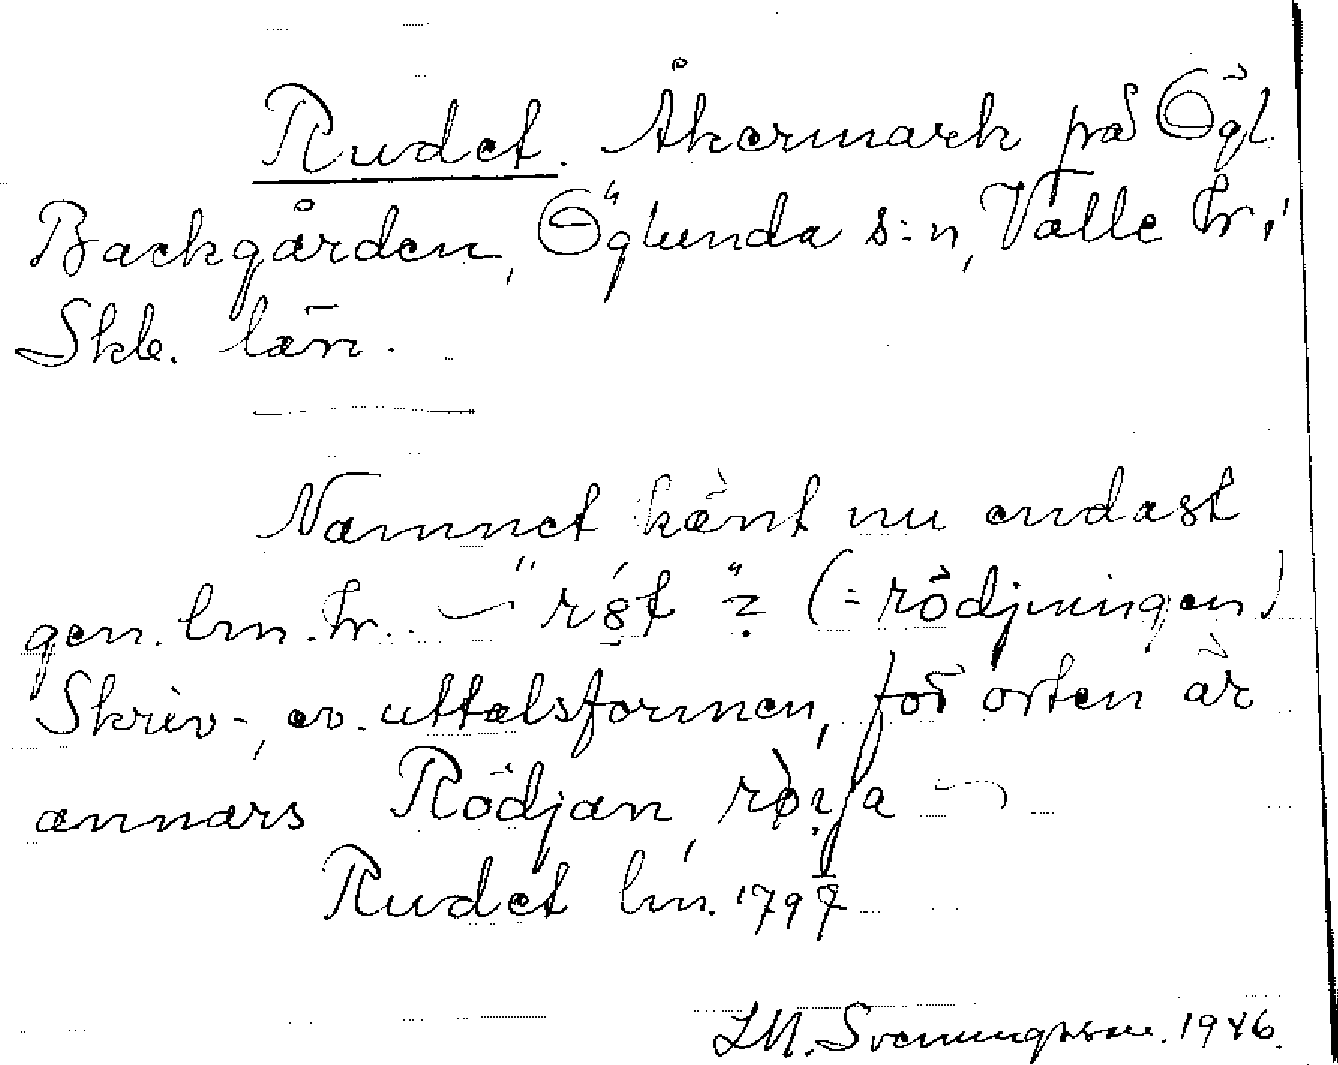 Rudet. Åkermark på Ögl.
Backgården, Öglunda s:n, Valle hr,
Skb. län.
Namnet känt nu endast
gen. lm. hr. — " "? (= rödjningen)
Skriv-, ev. uttalsformen, för orten är
annars Rödjan,
Rudet lm. 1797
Svenungsson. 1946.